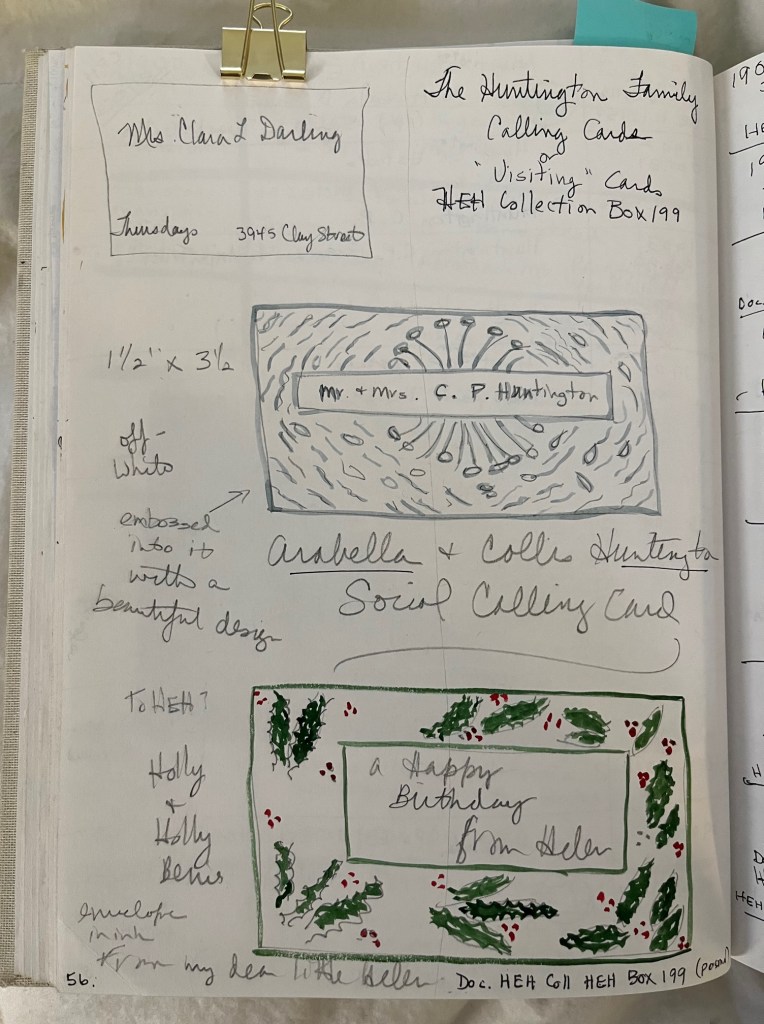 The Huntington Family
Calling Cards
or
"Visiting" Cards
HEH Collection Box 199
Mrs. Clara L Darling
Thursdays 3945 Clay Street
1 1/2" x 3 1/2
off-
white
embossed
into it
with a
beautiful design
Mr. + Mrs. C. P. Huntington
Arabella + Collis Huntington
Social Calling Card
To HEH?
Holly
+
Holly
Berries
a Happy
Birthday
from Helen
envelope
in ink
From my dear little Helen
56.
Doc. HEH Coll HEH Box 199
190
HE
19
Doc.
H
D
H
HEH